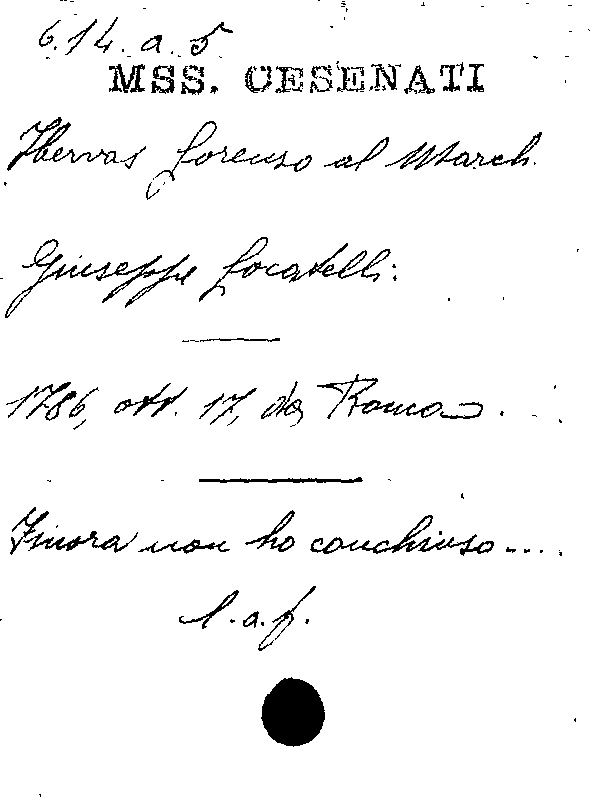 6.14.a.5
MSS. CESENATI
Hervas Lorenzo al March.
Giuseppe Locatelli:
1786, ott. 17, da Roma.
Finora non ho conchiuso....
l.a.f.